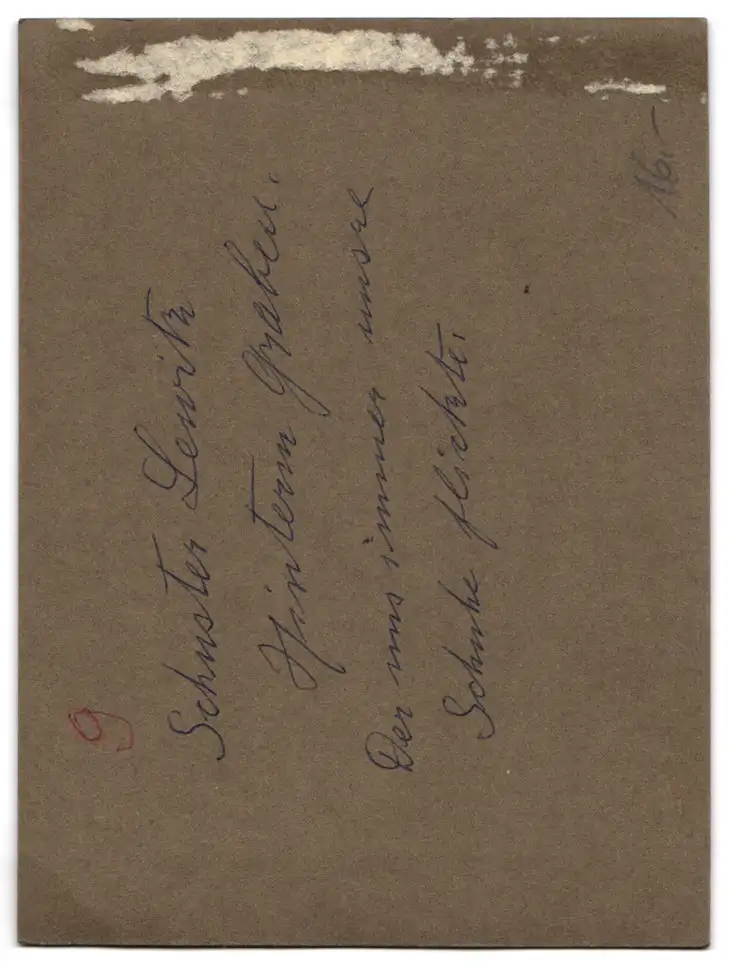 9
Schuster Lewitz
Hinterm Graben.
Der uns immer unsre
Schuhe flickte.
16.-